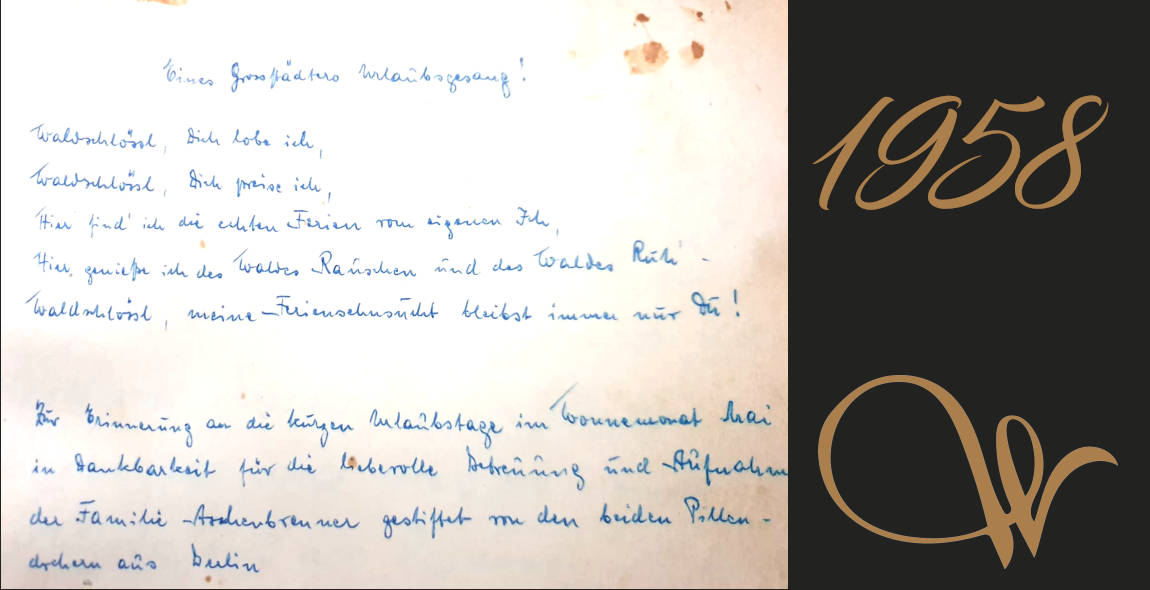 Eines Grossstädters Urlaubsgesang!
Waldschlössl, Dich lobe ich,
Waldschlössl, Dich preise ich,
Hier find' ich die echten Ferien vom eigenen Ich,
Hier, genieße ich des Waldes Rauschen und des Waldes Ruh' -
Waldschlössl, meine Feriensehnsucht bleibst immer nur Du!
Zur Erinnerung an die kurzen Urlaubstage im Wonnemonat Mai
in Dankbarkeit für die liebevolle Betreuung und Aufnahm
der Familie Aschenbrenner gestiftet von den beiden Pillen-
drehern aus Berlin
1958
W